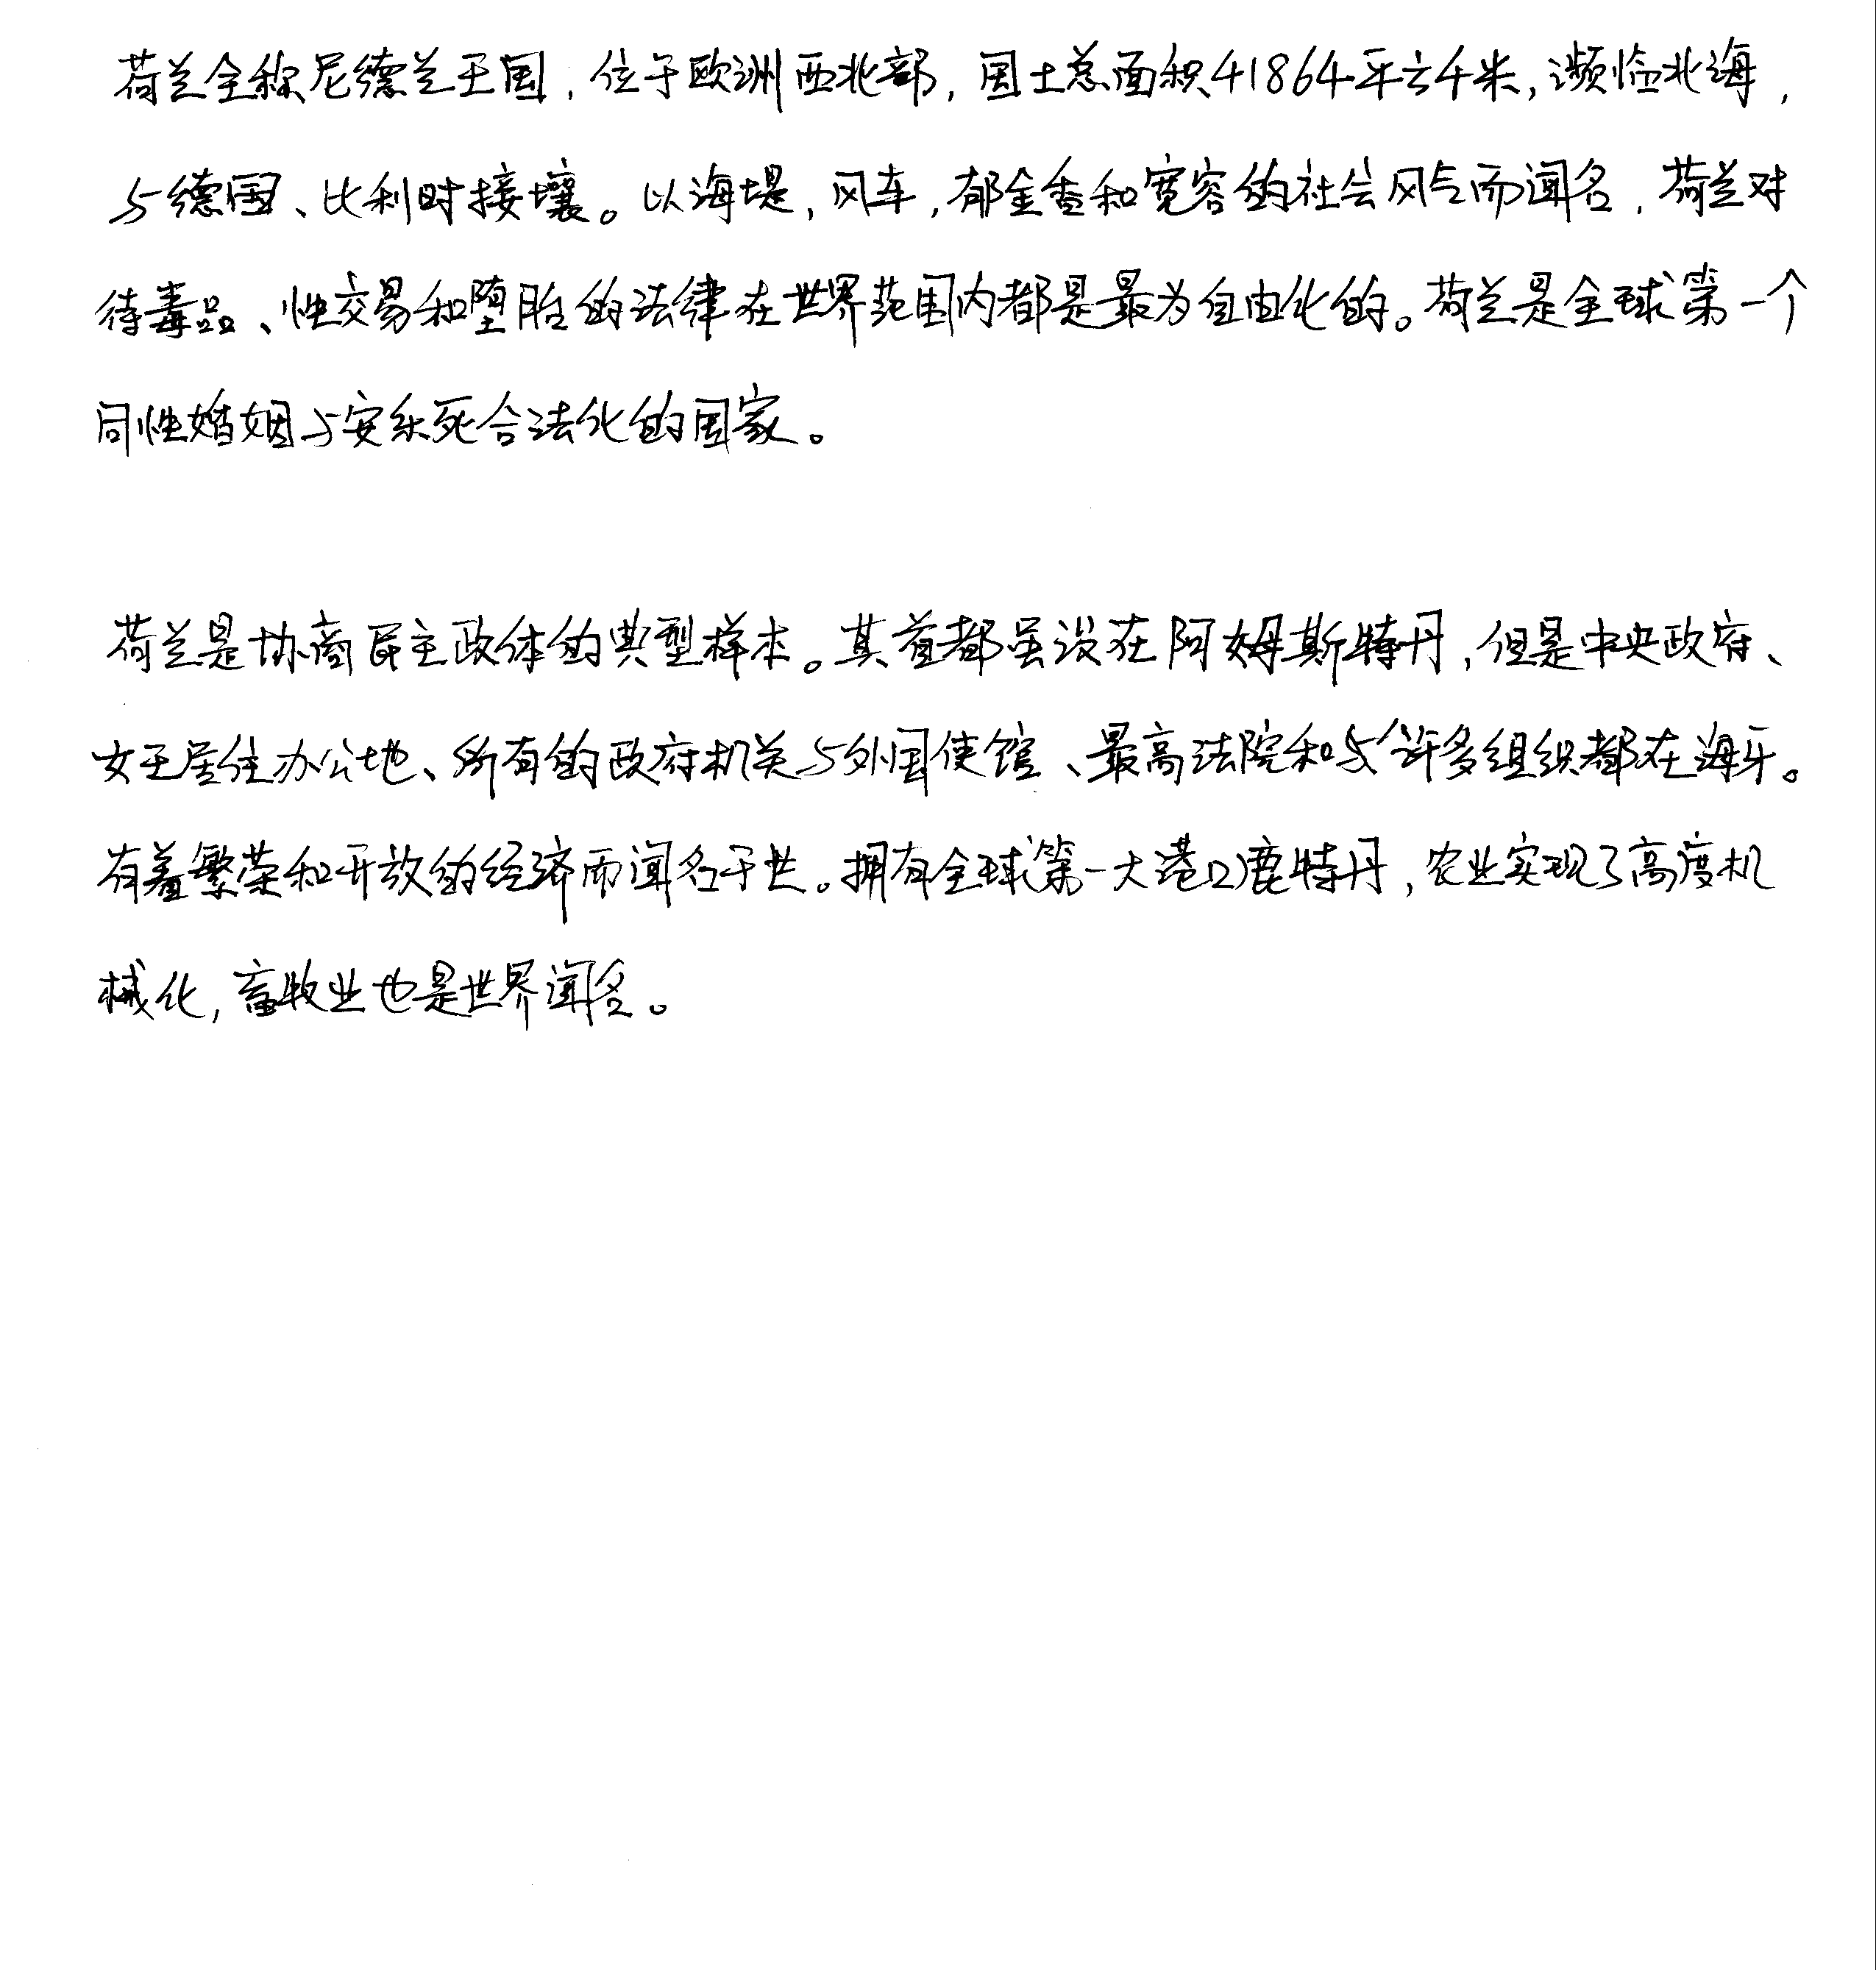 荷兰全称尼德兰王国，位于欧洲西北部，国土总面积41864平方千米，濒临北海，
与德国、比利时接壤。以海堤，风车，郁金香和宽容的社会风气而闻名，荷兰对
待毒品、性交易和堕胎的法律在世界范围内都是最为自由化的。荷兰是全球第一个
同性婚姻与安乐死合法化的国家。
荷兰是协商民主政体的典型样本。其首都虽设在阿姆斯特丹，但是中央政府、
女王居住办公地、所有的政府机关与外国使馆、最高法院和许多组织都在海牙。
有着繁荣和开放的经济而闻名于世。拥有全球第一大港口鹿特丹，农业实现了高度机
械化，畜牧业也是世界闻名。